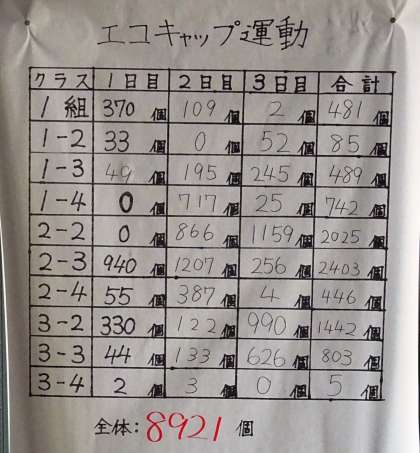 エコキャップ運動
クラス 1日目 2日目 3日目 合計
1組 370個 109個 2個 481個
1-2 33個 0個 52個 85個
1-3 49個 195個 245個 489個
1-4 0個 717個 25個 742個
2-2 0個 866個 1159個 2025個
2-3 940個 1207個 256個 2403個
2-4 55個 387個 4個 446個
3-2 330個 122個 990個 1442個
3-3 44個 133個 626個 803個
3-4 2個 3個 0個 5個
全体:8921個